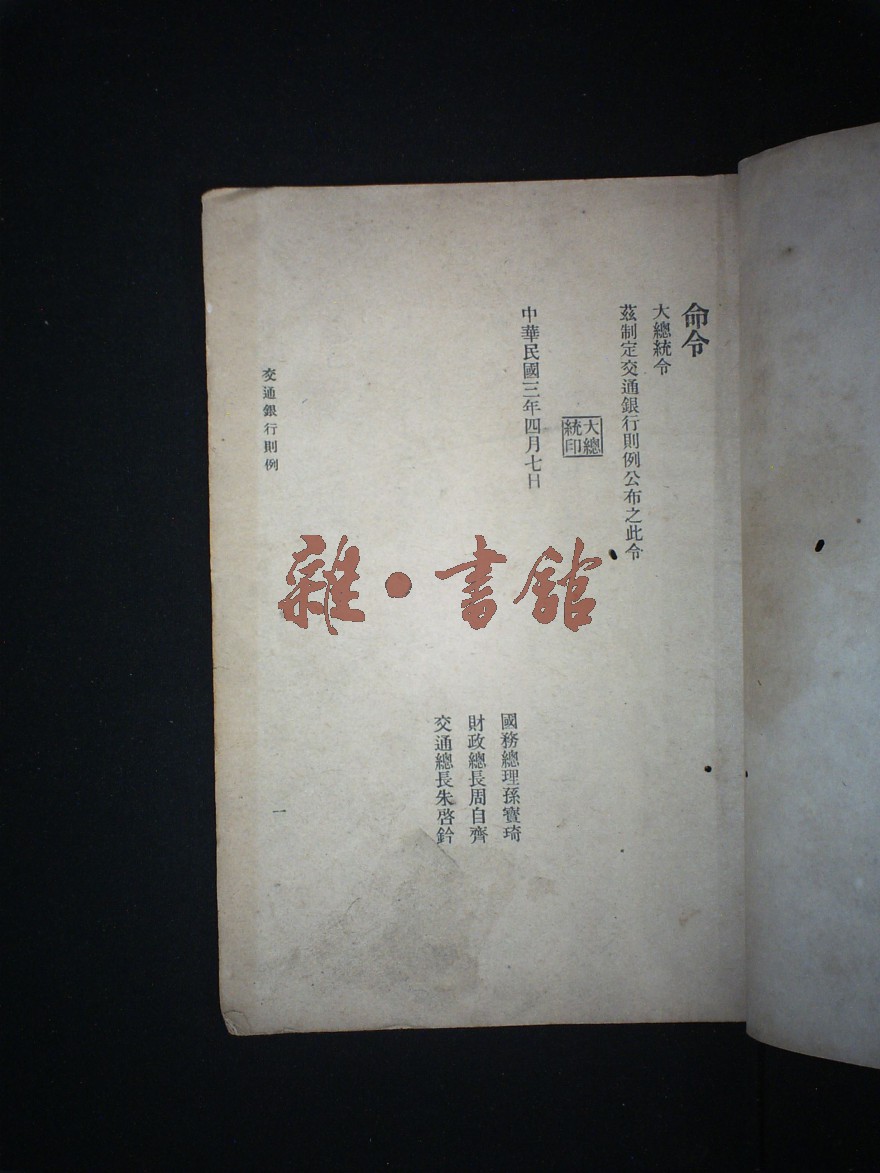 命令
大總統令
茲制定交通銀行則例公布之此令
大總
統印
中華民國三年四月七日
國務總理孫寶琦
財政總長周自齊
交通總長朱啓鈐
交通銀行則例
一
雜·書館